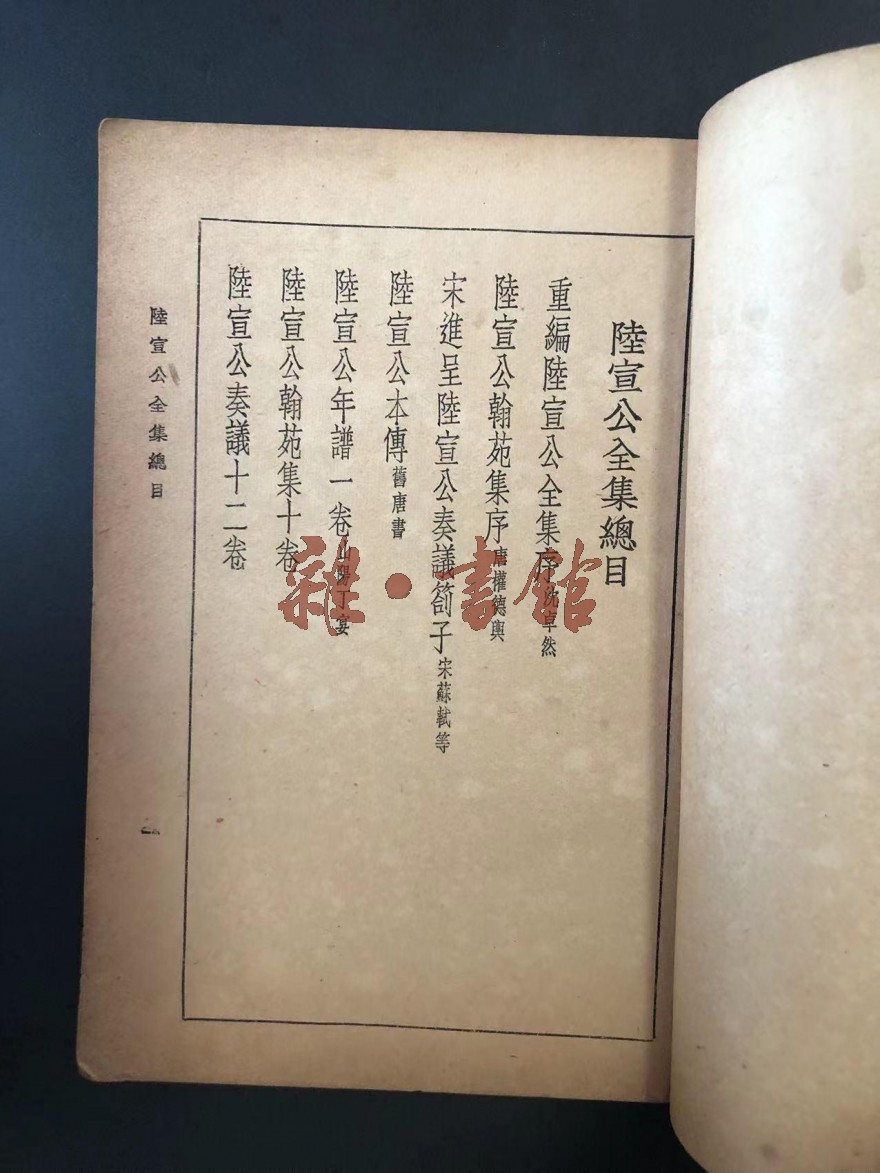 陸宣公全集總目
重編陸宣公全集序 沈卓然
陸宣公翰苑集序 唐權德輿
宋進呈陸宣公奏議劄子 宋蘇軾等
陸宣公本傳 舊唐書
陸宣公年譜一卷 山陽丁宴
陸宣公翰苑集十卷
陸宣公奏議十二卷
陸宣公全集總目
一
雜·書館